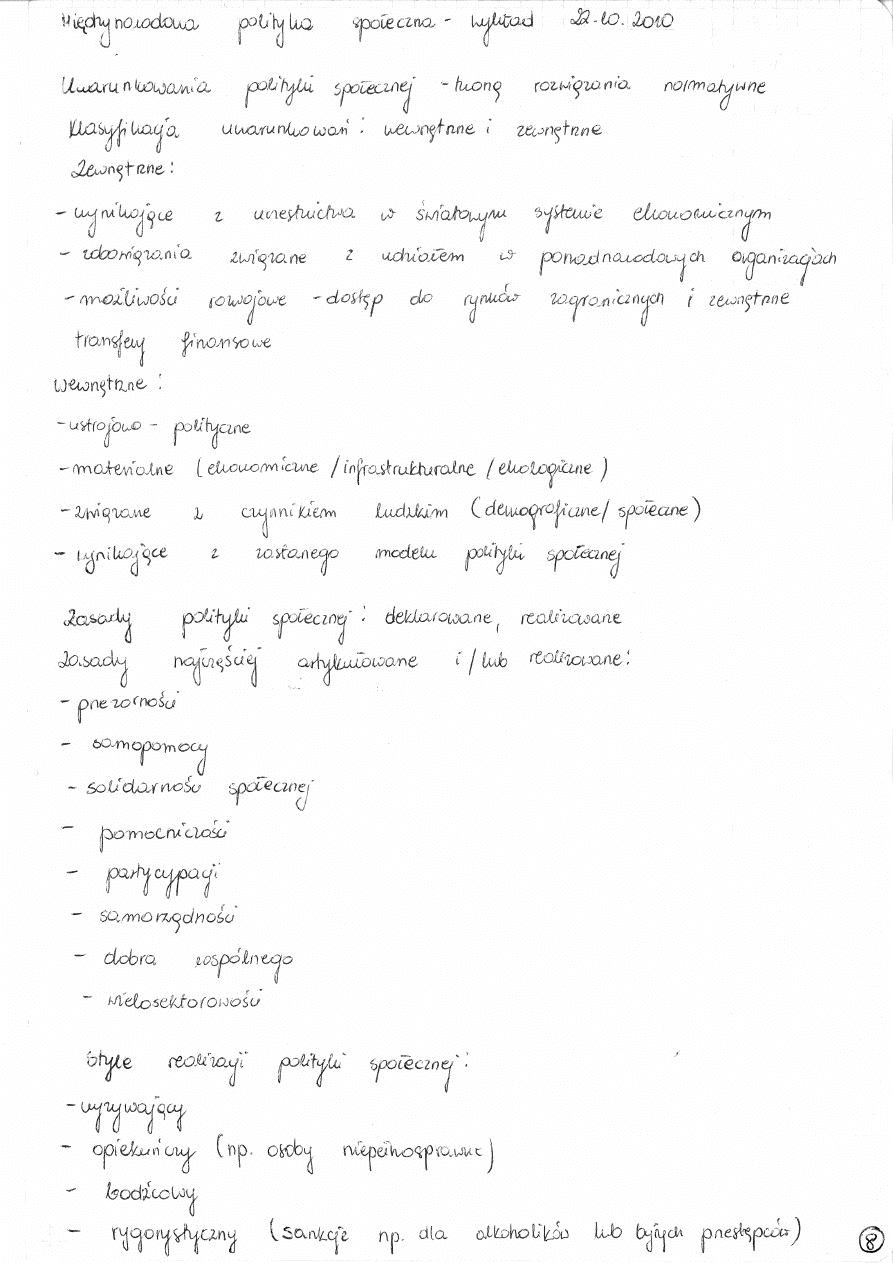 Międzynarodowa polityka społeczna - wykład 22.10.2010
Uwarunkowania polityki społecznej - tworzą rozwiązania normatywne
Klasyfikacja uwarunkowań: wewnętrzne i zewnętrzne
Zewnętrzne:
- wynikające z uczestnictwa w światowym systemie ekonomicznym
- zobowiązania związane z udziałem w ponadnarodowych organizacjach
- możliwości rozwojowe - dostęp do rynków zagranicznych i zewnętrzne
transfery finansowe
Wewnętrzne:
- ustrojowo - polityczne
- materialne (ekonomiczne / infrastrukturalne / ekologiczne)
- związane z czynnikiem ludzkim (demograficzne / społeczne)
- wynikające z zastanego modelu polityki społecznej
Zasady polityki społecznej: deklarowane, realizowane
Zasady najczęściej artykułowane i/lub realizowane:
- przezorności
- samopomocy
- solidarności społecznej
- pomocniczości
- partycypacji
- samorządności
- dobra wspólnego
- wielosektorowości
Style realizacji polityki społecznej:
- wyzywający
- opiekuńczy (np. osoby niepełnosprawne)
- bodźcowy
- rygorystyczny (sankcje np. dla alkoholików lub byłych przestępców)
8